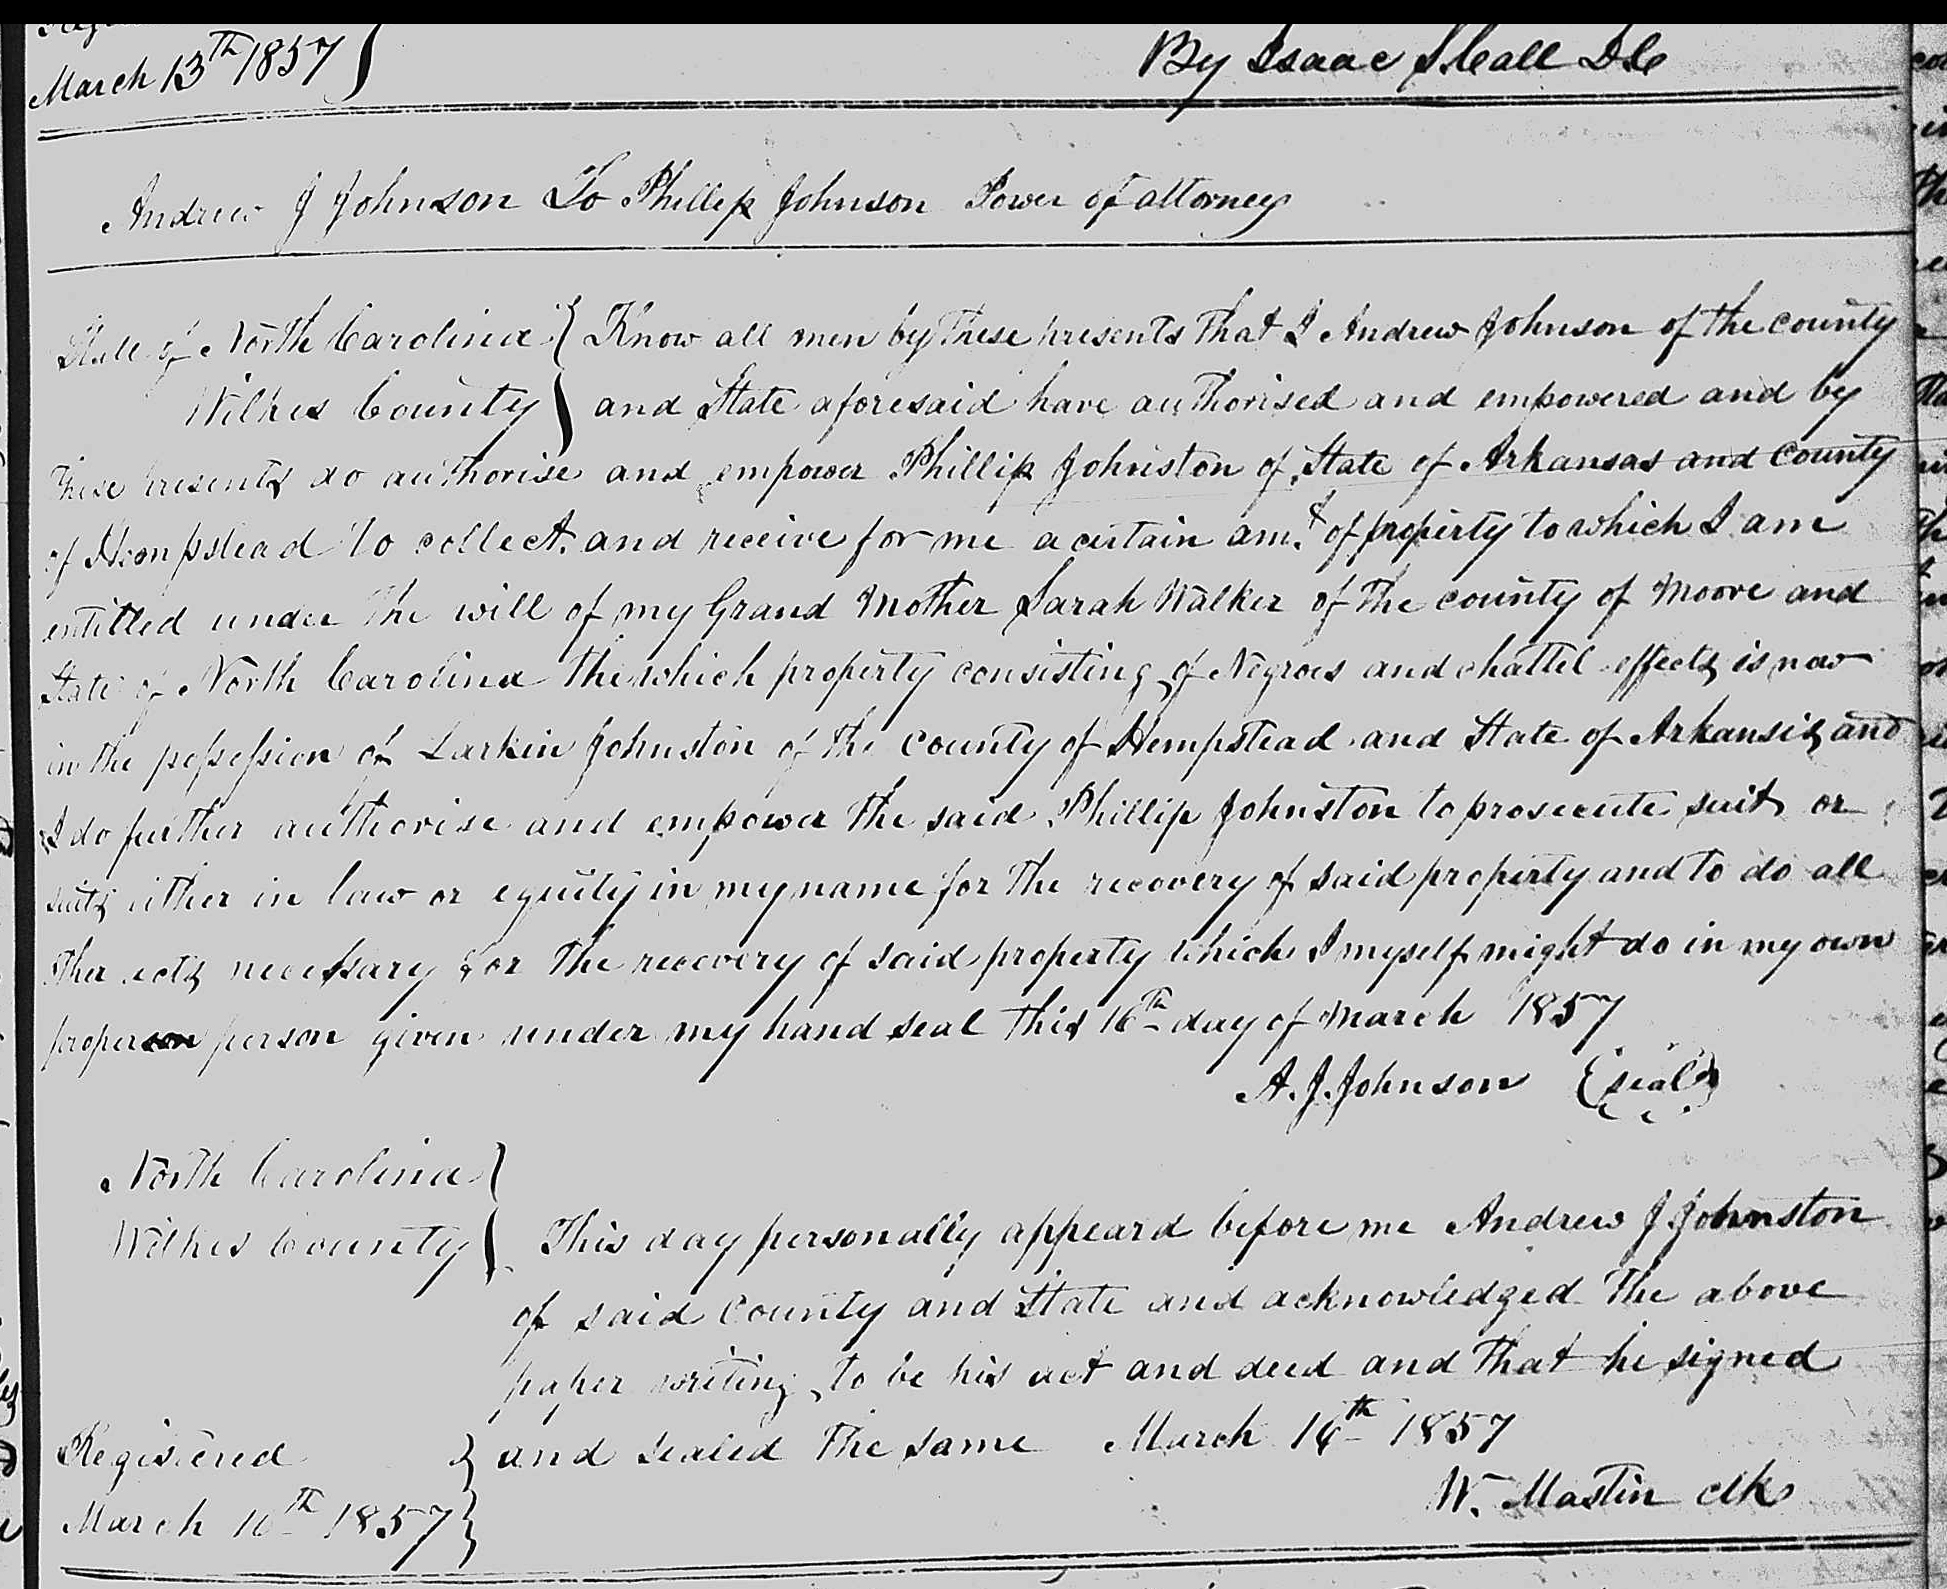 March 13th 1857
By Isaac S Call D C
Andrew J Johnson To Phillip Johnson Power of attorney
State of North Carolina } Know all men by these presents that I Andrew Johnson of the county
Wilkes County } and State aforesaid have authorised and empowered and by
these presents do authorise and empower Phillip Johnston of State of Arkansas and County
of Hempstead to collect and receive for me a certain am.t of property to which I am
entitled under the will of my Grand Mother Sarah Walker of the county of Moore and
State of North Carolina the which property consisting of Negroes and chattel effects is now
in the possession of Larkin Johnston of the county of Hempstead and State of Arkansis and
I do further authorise and empower the said Phillip Johnston to prosecute suit or
suits either in law or equity in my name for the recovery of said property and to do all
ther acts necessary for the recovery of said property which I myself might do in my own
proper person given under my hand seal this 16th day of March 1857
A. J. Johnson {seal}
North Carolina }
Wilkes County } This day personally appeard before me Andrew J Johnston
of said County and State and acknowledged the above
paper writing to be his act and deed and that he signed
and sealed the same March 16th 1857
Registered
March 16th 1857
W. Mastin clk